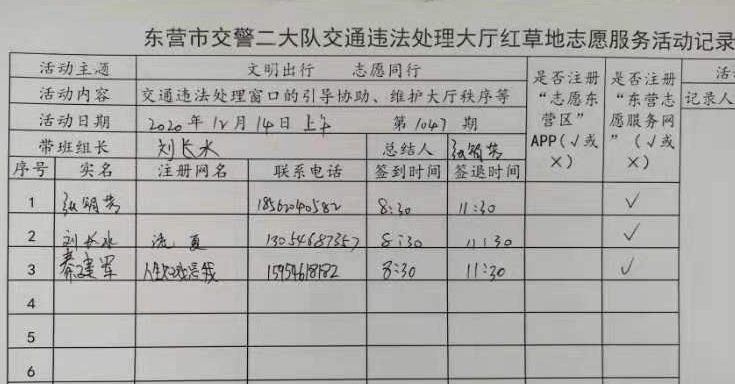 东营市交警二大队交通违法处理大厅红草地志愿服务活动记录
活动主题 文明出行 志愿同行 是否注册“志愿东营区”APP(√或×) 是否注册“东营志愿服务网”(√或×) 活
活动内容 交通违法处理窗口的引导协助、维护大厅秩序等 记录人
活动日期 2020年12月14日上午 第1047期
带班组长 刘长水 总结人
序号 实名 注册网名 联系电话 签到时间 签退时间
1 18562040582 8:30 11:30 √
2 刘长水 流夏 13054687357 8:30 11:30 √
3 秦建军 15954618182 8:30 11:30 √
4
5
6